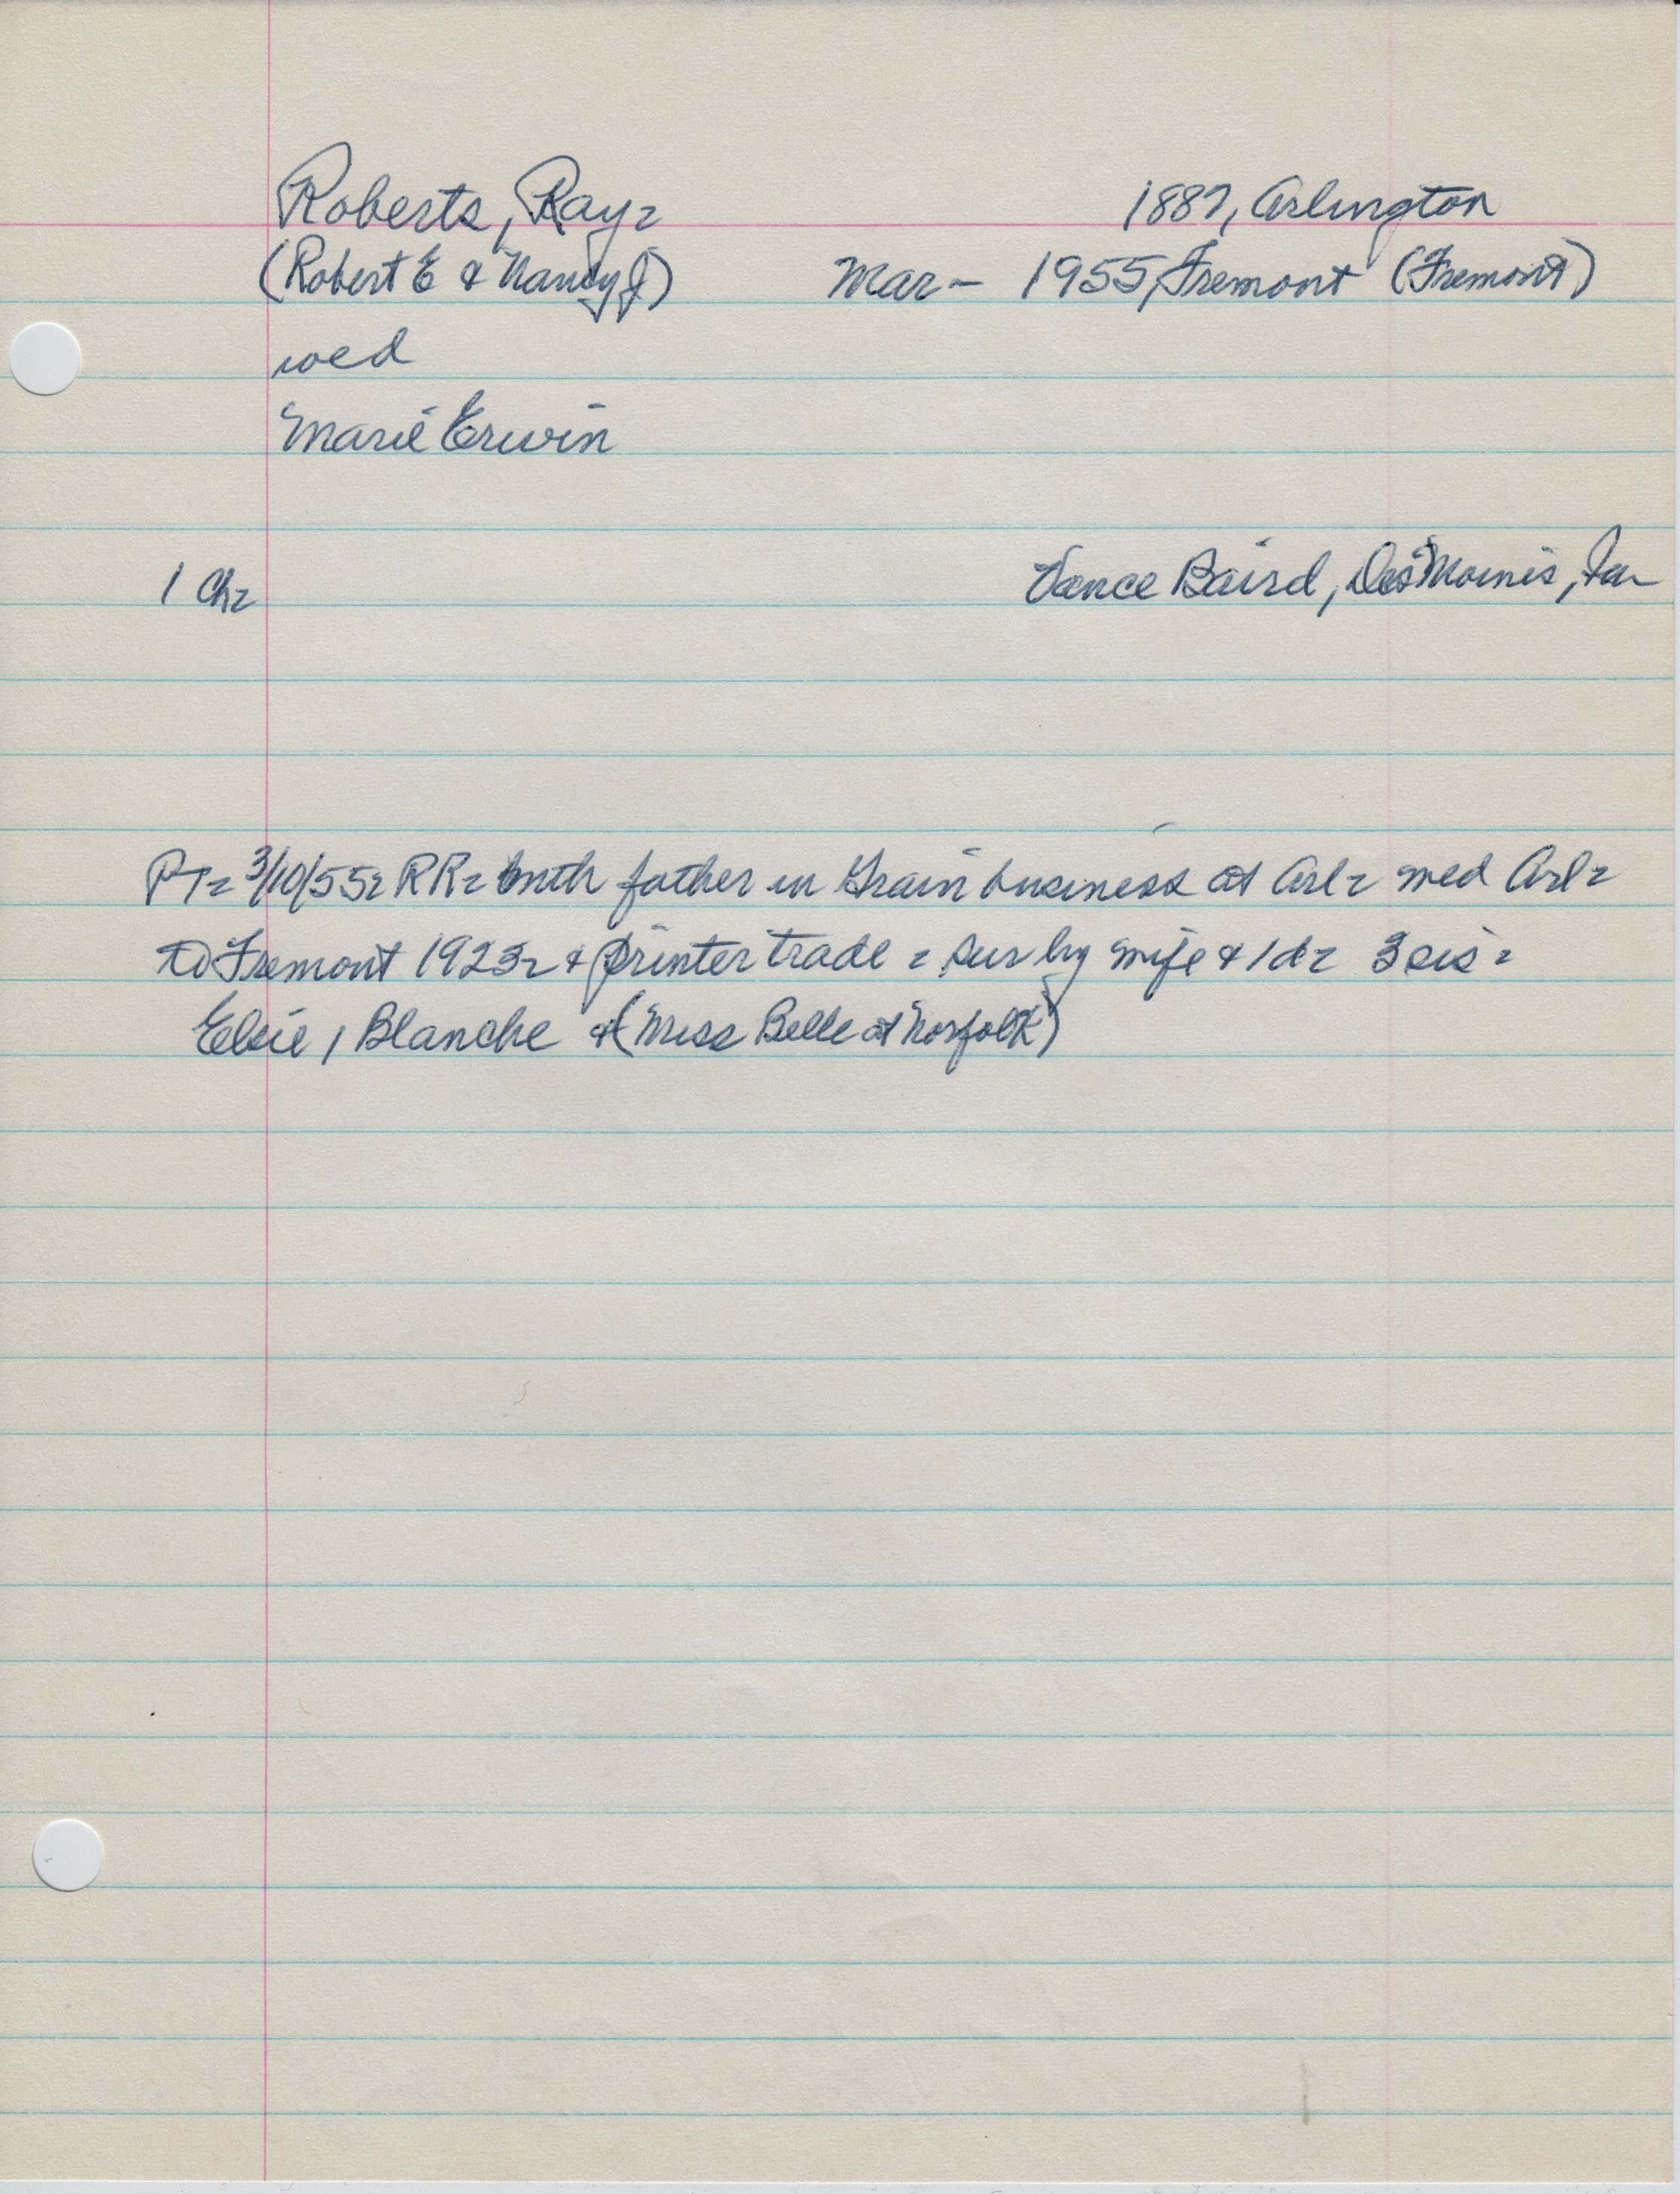 Roberts, Ray= 1887, Arlington
(Robert E & Nancy J) Mar - 1955, Fremont (Fremont)
wed
Marie Erwin
1 Ch= Vance Baird, Des Moines, Ia
PT= 3/10/55= RR= with father in Grain business at Arl= wed Arl=
to Fremont 1923= & printer trade = sur by wife & 1d= 3 sis=
Elsie, Blanche & (Miss Belle at Norfolk)